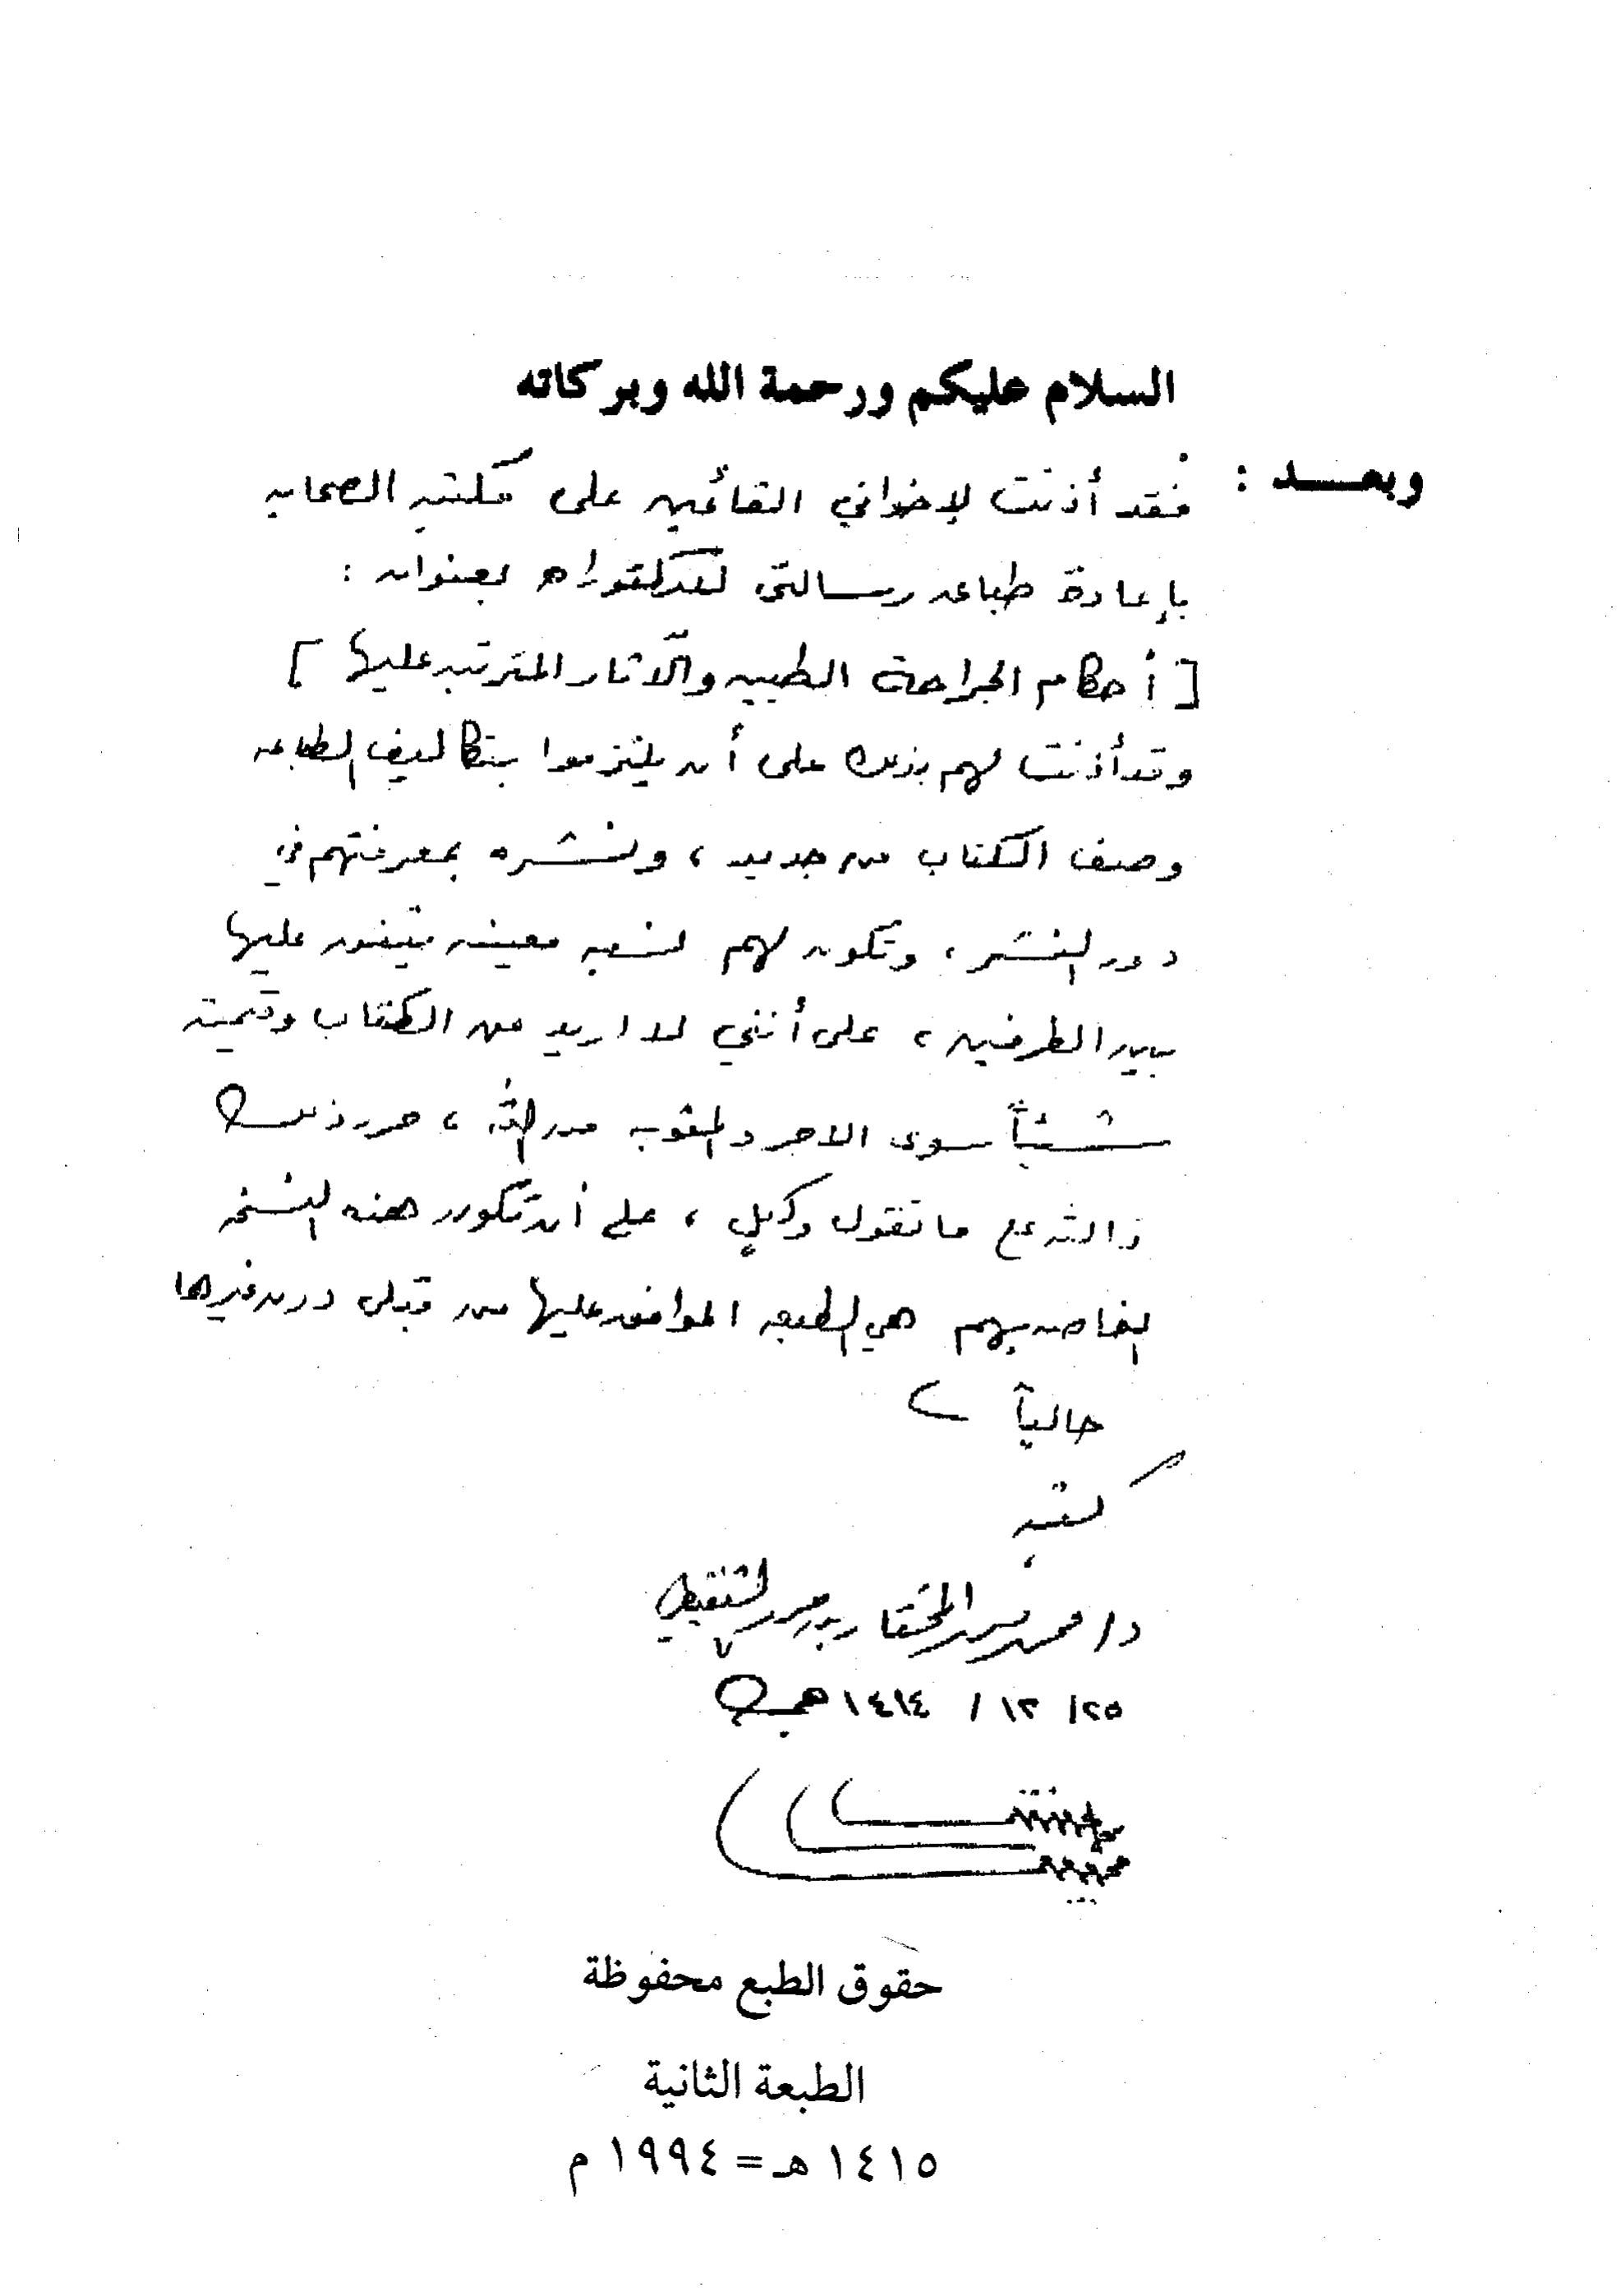 السلام عليكم ورحمة الله وبركاته
وبعـــد : فقد أذنت لإخواني القائمين على مكتبه الصحابه
بإعادة طباعه رسالتي للدكتوراه بعنوان :
[ أحكام الجراحة الطبيه والآثار المترتبه عليها ]
وقد أذنت لهم بذلك على أن يلتزموا بتكاليف الطباعه
وصف الكتاب من جديد ، ونشره بمعرفتهم في
دور النشر ، وتكون لهم نسبه معينه يتفق عليها
بين الطرفين ، على أنني لا اريد من الكتاب وقيمته
شيئاً سوى الاجر والمثوبه من الله ، حرر ذلك
والله على ما نقول وكيل ، على أن تكون هذه النسخه
الخاصه بهم هي الطبعه الموافق عليها من قبلي دون غيرها
حالياً
كتبه
د/ محمد بن محمد المختار بن محمد الشنقيطي
٢٥/ ١٢ / ١٤١٤ هـ
حقوق الطبع محفوظة
الطبعة الثانية
١٤١٥ هـ = ١٩٩٤ م